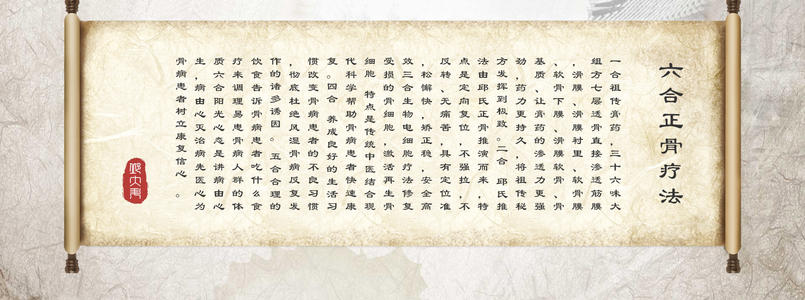 六合正骨疗法
一合祖传膏药，三十六味大
组方七层透骨直接渗透筋膜
，滑膜、滑膜衬里、软骨膜
、软骨下膜、滑膜软骨、骨
基质、让膏药的渗透力更强
劲，药力更持久，将祖传秘
方发挥到极致。二合 邱氏推
法由邱氏正骨推演而来，特
点是定向复位，不强拉，不
反转、无痛苦，具有定位准
，松懈快，矫正稳，安全高
效三合生物电细胞疗法修复
受损的骨细胞，激活再生骨
细胞 特点是传统中医结合现
代科学帮助骨病患者快速康
复。四合 养成良好的生活习
惯改变骨病患者的不良习惯
，彻底杜绝风湿骨病反复发
作的诸多诱因。 五合合理的
饮食告诉骨病患者吃什么食
疗来调理易患骨病人群的体
质六合阳光心态是讲病由心
生，病由心灭治病先医心为
骨病患者树立康复信心 。